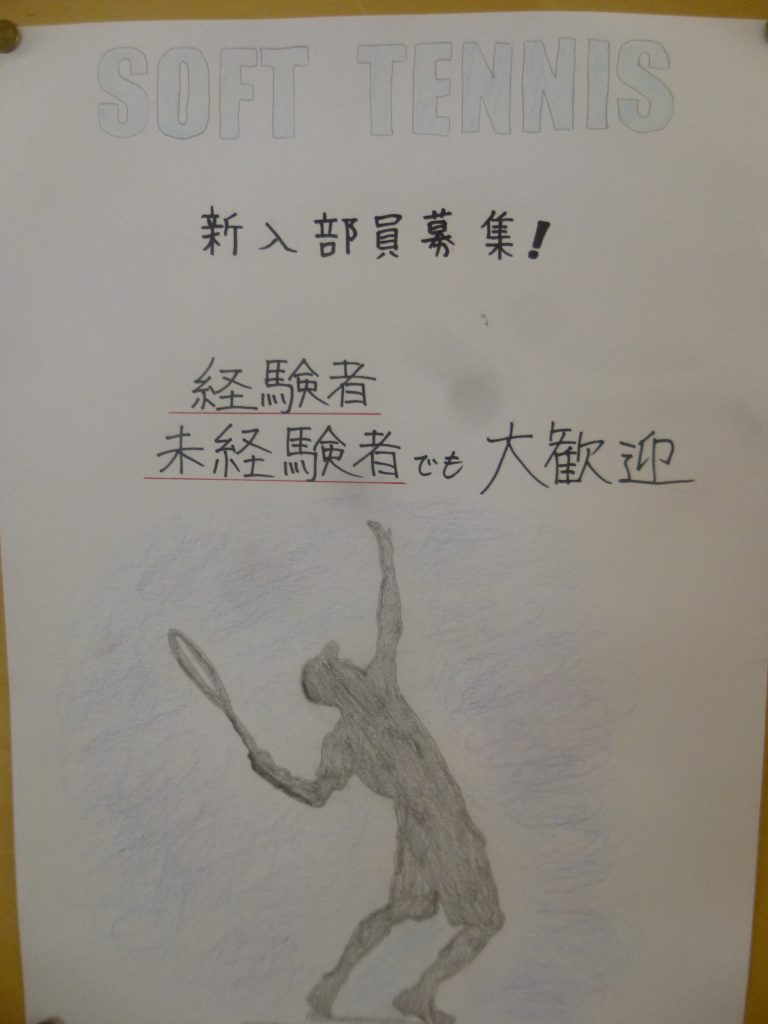 SOFT TENNIS
新入部員募集!
経験者
未経験者でも大歓迎